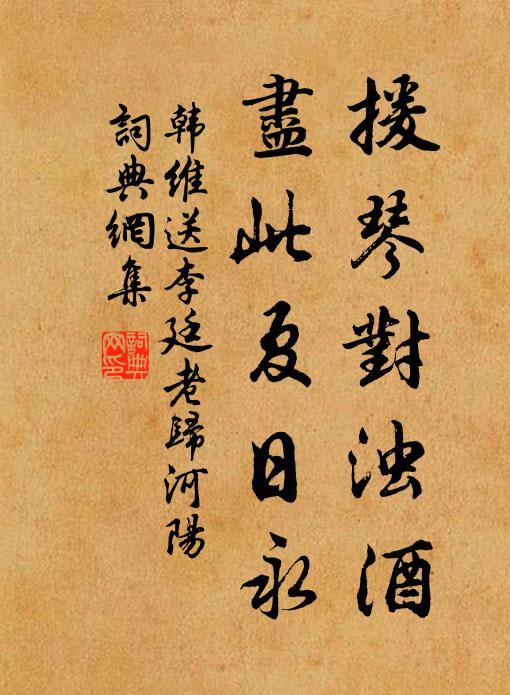 援琴對浊酒
盡此夏日永
韩维送李廷老歸河陽
詞典網集
詞典
网印